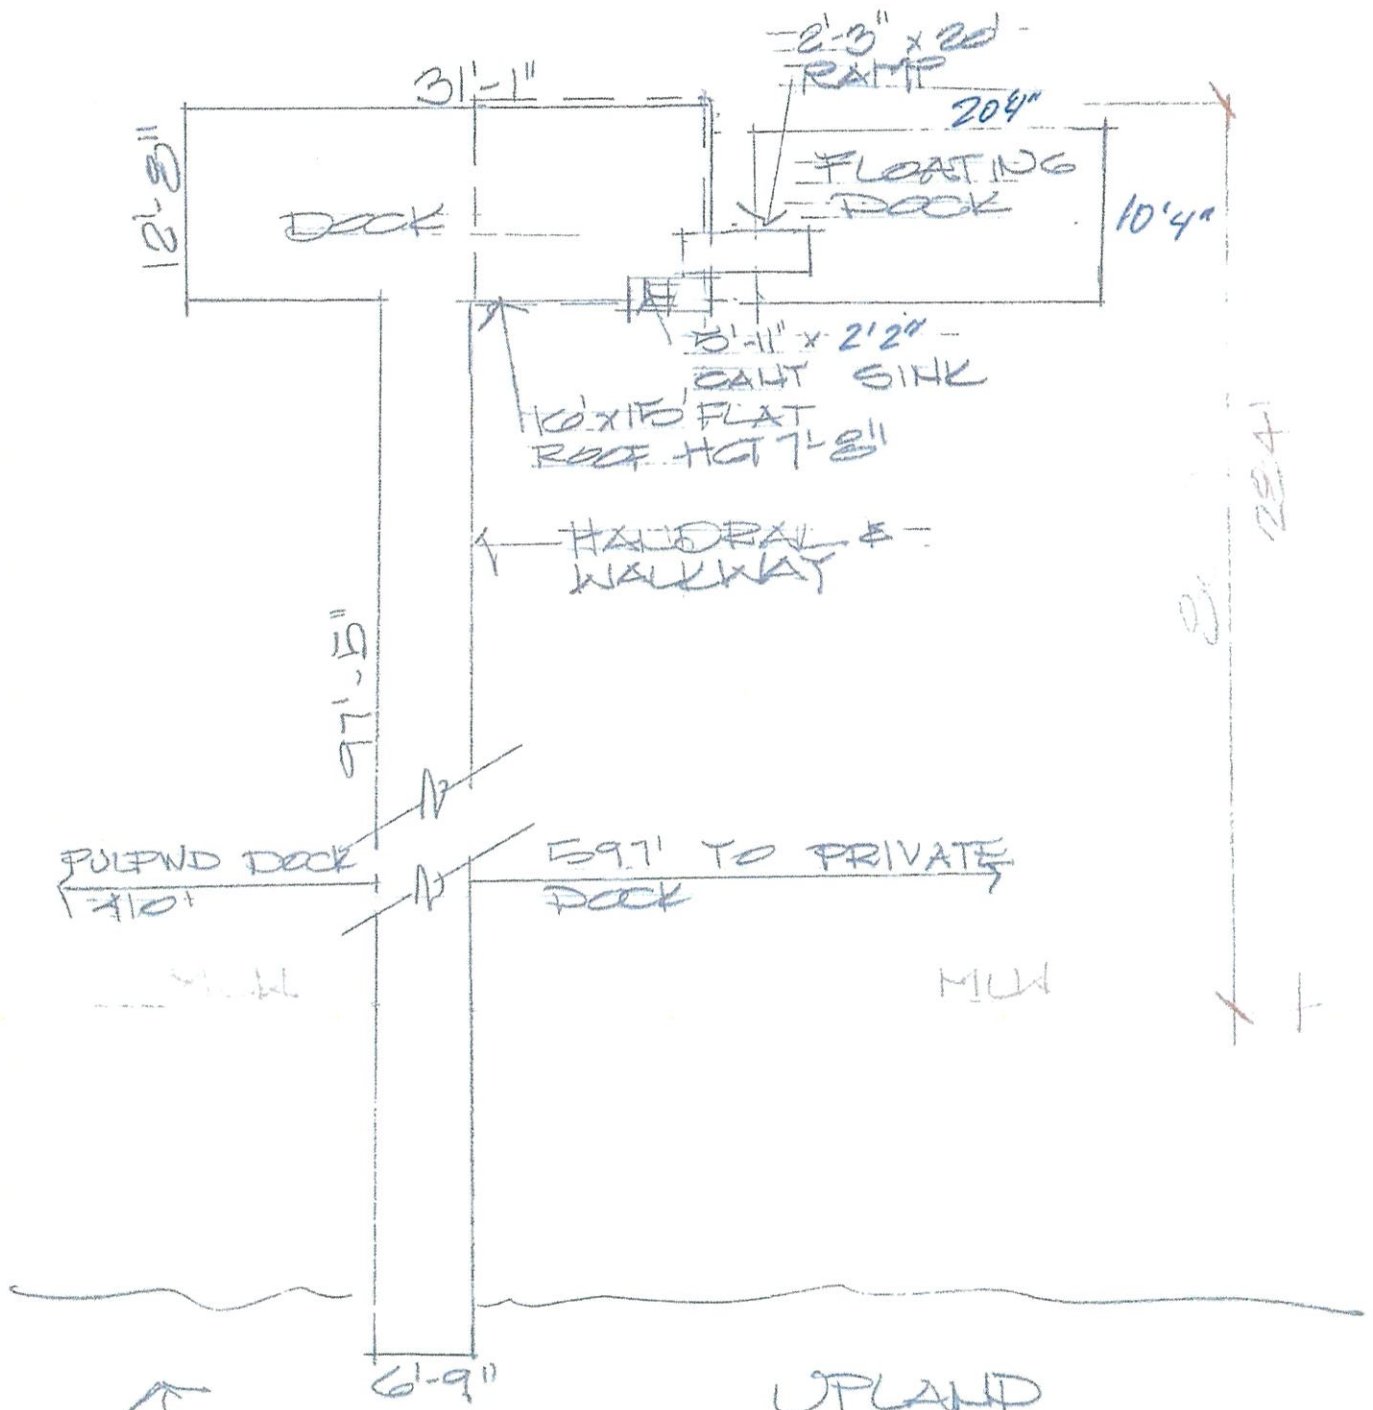 2'-3" x 20'
RAMP
31'-1"
20'4"
12'-8"
FLOATING
DOCK
DOCK
10'4"
5'-11" x 2'2"
CANT SINK
16'x15' FLAT
ROOF HGT 7'-8"
HANDRAL &
WALKWAY
97'-5"
PULPWD DOCK
597' TO PRIVATE
DOCK
MLW
MLW
6'-9"
UPLAND